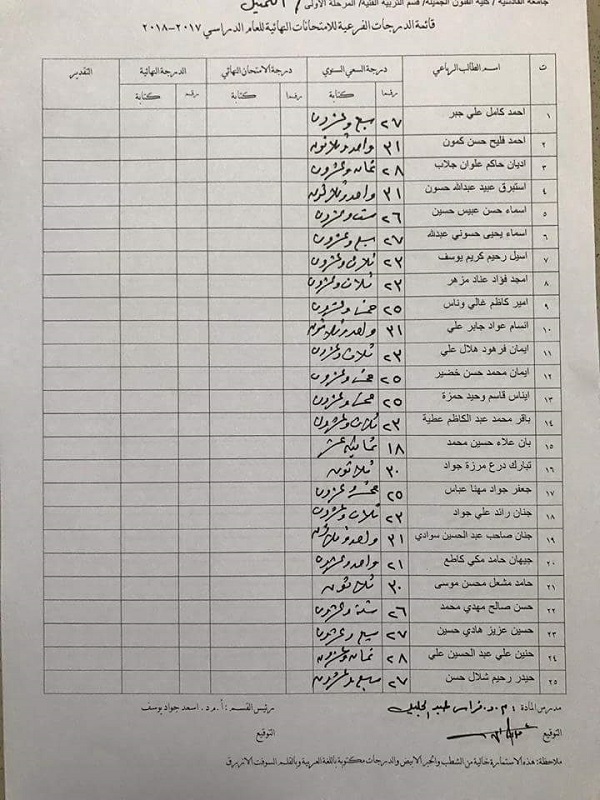 جامعة القادسية / كلية الفنون الجميلة / قسم التربية الفنية / المرحلة الاولى / التمثيل
قائمة الدرجات الفرعية للامتحانات النهائية للعام الدراسي ٢٠١٧-٢٠١٨
ت اسم الطالب الرباعي درجة السعي السنوي درجة الامتحان النهائي الدرجة النهائية التقدير
رقما كتابة رقما كتابة رقما كتابة
١ احمد كامل علي جبر ٢٧ سبع وعشرون
٢ احمد فليح حسن كمون ٣١ واحد وثلاثون
٣ اديان حاكم علوان جلاب ٢٨ ثمان وعشرون
٤ استبرق عبيد عبدالله حسون ٣١ واحد وثلاثون
٥ اسماء حسن عبيس حسين ٢٦ ست وعشرون
٦ اسماء يحيى حسوني عبدالله ٢٧ سبع وعشرون
٧ اسيل رحيم كريم يوسف ٢٣ ثلاث وعشرون
٨ امجد فؤاد عناد مزهر ٢٣ ثلاث وعشرون
٩ امير كاظم غالي وناس ٢٥ خمس وعشرون
١٠ انسام عواد جابر علي ٣١ واحد وثلاثون
١١ ايمان فرهود هلال علي ٢٣ ثلاث وعشرون
١٢ ايمان محمد حسن خضير ٢٥ خمس وعشرون
١٣ ايناس قاسم وحيد حمزة ٢٥ خمس وعشرون
١٤ باقر محمد عبد الكاظم عطية ٢٣ ثلاث وعشرون
١٥ بان علاء حسين محمد ١٨ ثمانية عشر
١٦ تبارك درع مرزة جواد ٣٠ ثلاثون
١٧ جعفر جواد مهنا عباس ٢٥ خمس وعشرون
١٨ جنان رائد علي جواد ٢٣ ثلاث وعشرون
١٩ جنان صاحب عبد الحسين سوادي ٣١ واحد وثلاثون
٢٠ جيهان حامد مكي كاطع ٢١ واحد وعشرون
٢١ حامد مشعل محسن موسى ٣٠ ثلاثون
٢٢ حسن صالح مهدي محمد ٢٦ ستة وعشرون
٢٣ حسين عزيز هادي حسين ٢٧ سبع وعشرون
٢٤ حنين علي عبد الحسين علي ٢٨ ثمان وعشرون
٢٥ حيدر رحيم شلال حسن ٢٧ سبع وعشرون
مدرس المادة : م.د. فراس رئيس القسم : أ.م.د. اسعد جواد يوسف
التوقيع التوقيع
ملاحظة : هذه الاستمارة خالية من الشطب والحبر الابيض والدرجات مكتوبة باللغة العربية وبالقلم السوفت الازرق